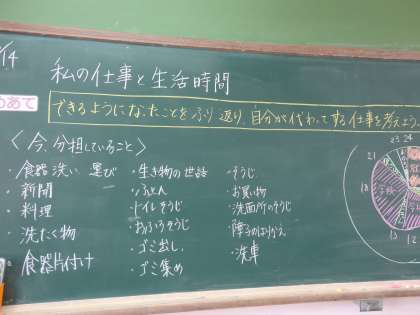 /14
私の仕事と生活時間
めあて
できるようになったことをふり返り、自分が代わってする仕事を考えよう。
<今、分担していること>
・食器洗い 運び
・新聞
・料理
・洗たく物
・食器片付け
・生き物の世話
・ふとん
・トイレそうじ
・おふろそうじ
・ゴミ出し
・ゴミ集め
・そうじ
・お買い物
・洗面所のそうじ
・障子のはりかえ
・洗車
23 24
21
18
13 12